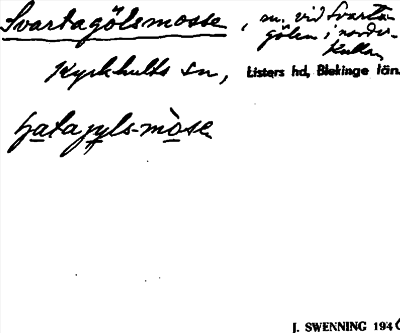 Svartagölsmosse, m. vid Svarta
gölen i nordv.
Kullan
Kyrkhults sn, Listers hd, Blekinge län.
J. SWENNING 194